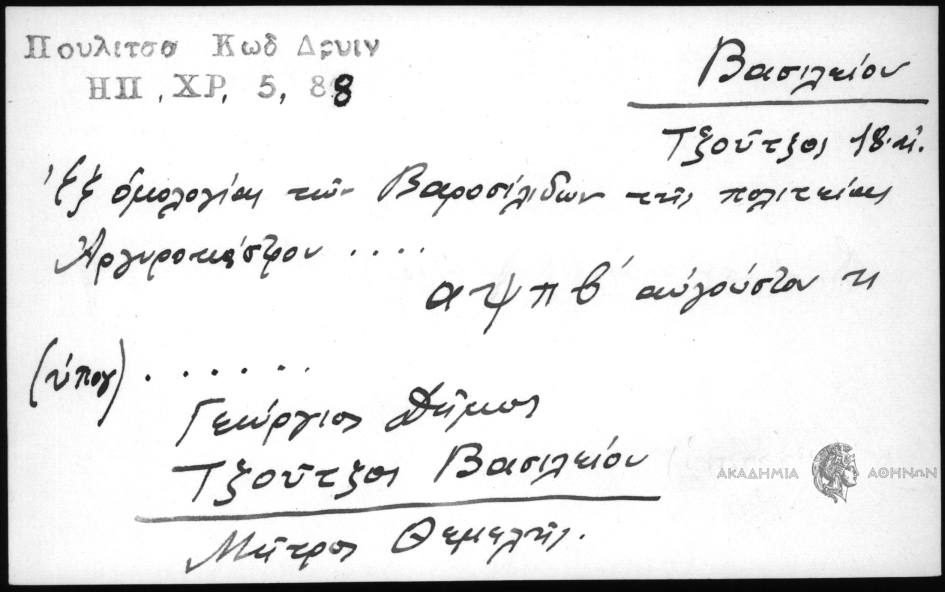 Πουλιτσα Κωδ Δρυιν
ΗΠ. ΧΡ. 5, 88
Βασιλείου
Τζούτζος 18.αἰ.
Ἐξ ὁμολογίας τῶν Βαροσιλιδων τῆς πολιτείας
Ἀργυροκάστρου ....
αψπβ΄ αὐγούστου η
(ὑπογ) ......
Γεώργιος Δῆμος
Τζοῦτζος Βασιλείου
Μῆτρος Θεμελῆς.
ΑΚΑΔΗΜΙΑ ΑΘΗΝΩΝ